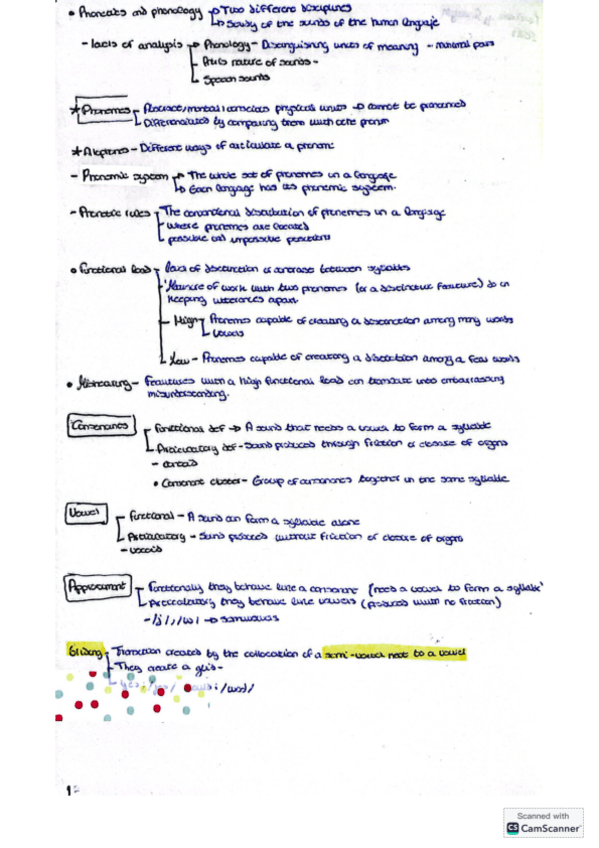 • Phonetics and phonology → Two different disciplines
↳ Study of the sounds of the human language
- of analysis → Phonology - Distinguishing units of meaning - minimal pairs
nature of sounds -
Speech sounds
* Phonemes - Abstract/mental/conscious physical units → cannot be pronounced
Differenciated by comparing them with other
- Different ways of articulate a phoneme
- Phonemic system → The whole set of phonemes in a language
↳ Each language has its phonemic system.
- Phonetic rules - The conventional distribution of phonemes in a language
where phonemes are located
possible and impossible positions
• Functional load - of distinction or contrast between syllables
of work with two phonemes (or a distinctive feature) do in
keeping utterances apart
- High - Phonemes capable of creating a distinction among many words
Vowels
Low - Phonemes capable of creating a distinction among a few words
• - Features with a high functional load can translate into embarrassing
misunderstanding.
Consonants - Functional def → A sound that needs a vowel to form a syllable
Articulatory def - Sound produced through friction or closure of organs
- contoids
• Consonant cluster - Group of consonants together in the same syllable
Vowel - Functional - A sound can form a syllable alone
Articulatory - Sound produced without friction or closure of organs
- vocoids
Approximant - Functionally they behave like a consonant (need a vowel to form a syllable)
Articulatory they behave like vowels (produced with no friction)
- /j/, /w/ → semivowels
Gliding - Transition created by the collocation of a semi-vowel next to a vowel
They create a glide -
1
Scanned with
CS CamScanner